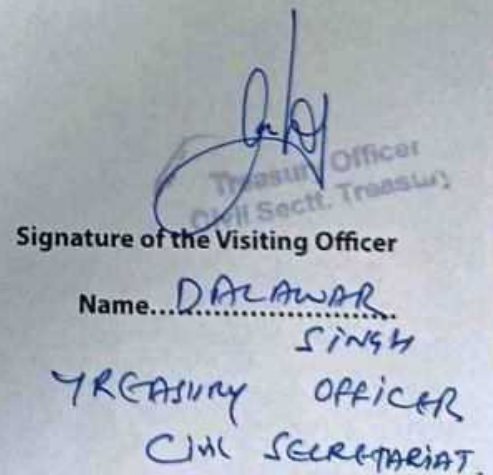 Treasury Officer
Civil Sectt. Treasury
Signature of the Visiting Officer
Name...DALAWAR
SINGH
TREASURY OFFICER
CIVIL SECRETARIAT.